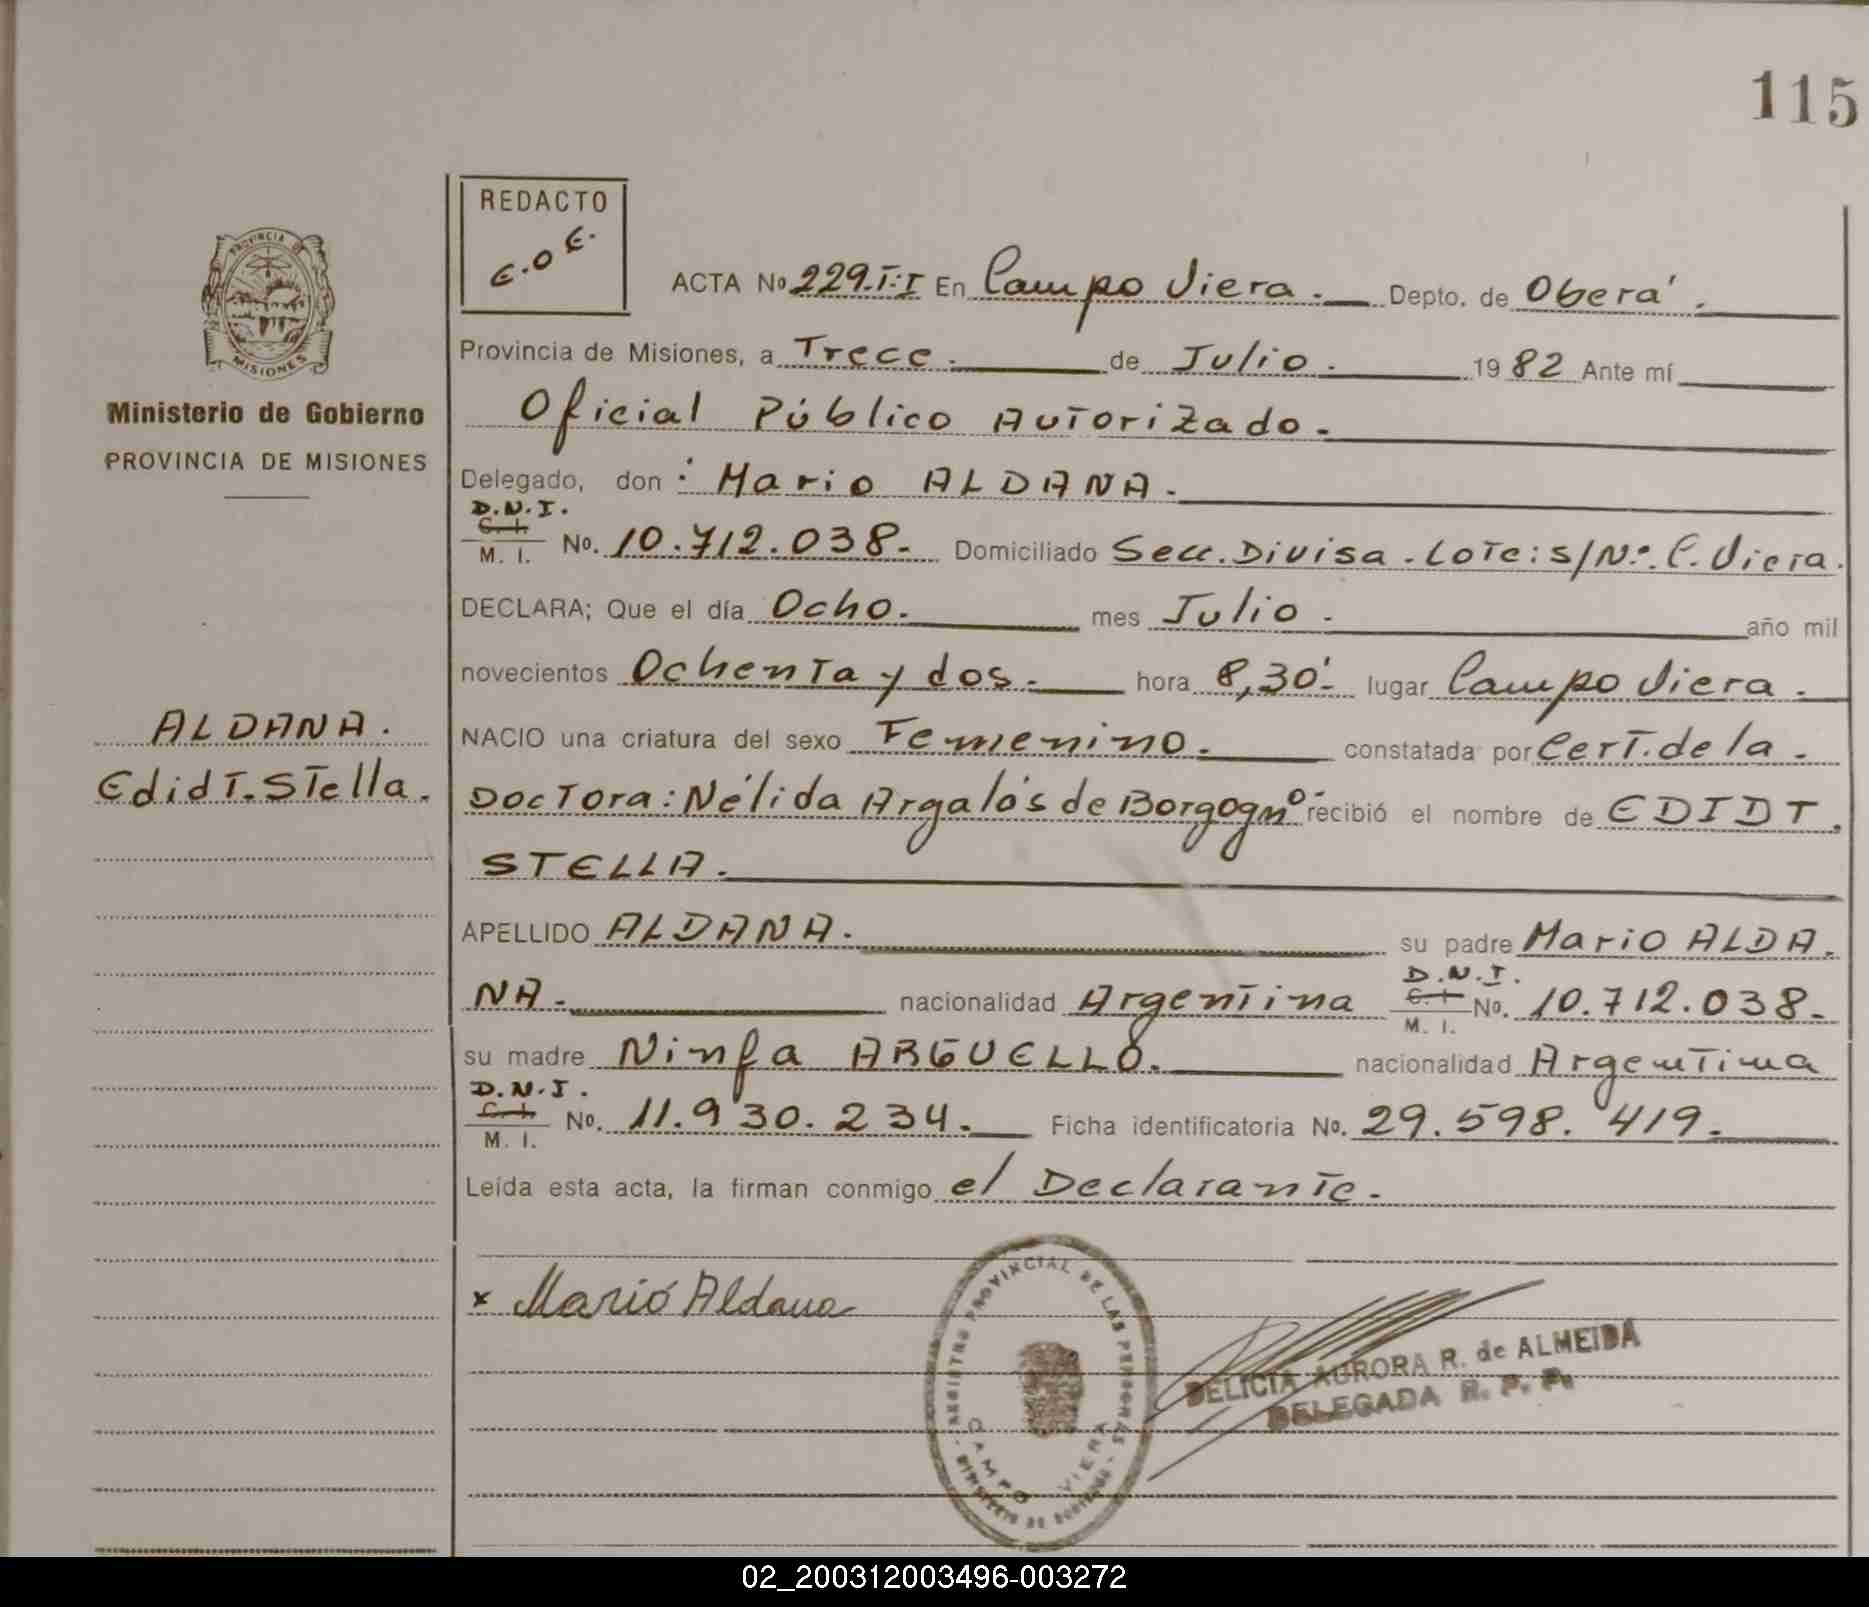 115
REDACTO
E.O.E.
ACTA No 229.T:I En Campo Viera. Depto. de Oberá.
Provincia de Misiones, a Trece. de Julio. 1982 Ante mí
Oficial Público Autorizado.
Delegado, don: Mario ALDANA.
D.N.I.
C. I.
M. I. No. 10.712.038. Domiciliado Secc. Divisa. Lote: s/Nº. C. Viera.
DECLARA; Que el día Ocho. mes Julio. año mil
novecientos Ochenta y dos. hora 8,30'. lugar Campo Viera.
NACIO una criatura del sexo Femenino. constatada por Cert. de la.
Doctora: Nélida Argalás de Borgogno recibió el nombre de EDIDT
STELLA.
APELLIDO ALDANA. su padre Mario ALDA
NA. nacionalidad Argentina D.N.I. C. I. M. I. No. 10.712.038.
su madre Ninfa ARGUELLO. nacionalidad Argentina
D.N.I.
C. I.
M. I. No. 11.930.234. Ficha identificatoria No. 29.598.419.
Leída esta acta, la firman conmigo el Declarante.
x Mario Aldana
REGISTRO PROVINCIAL DE LAS PERSONAS
CAMPO VIERA
MINISTERIO DE GOBIERNO
DELICIA AURORA R. de ALMEIDA
DELEGADA R. P. P.
PROVINCIA DE
MISIONES
Ministerio de Gobierno
PROVINCIA DE MISIONES
ALDANA.
EdidT. Stella.
02_200312003496-003272